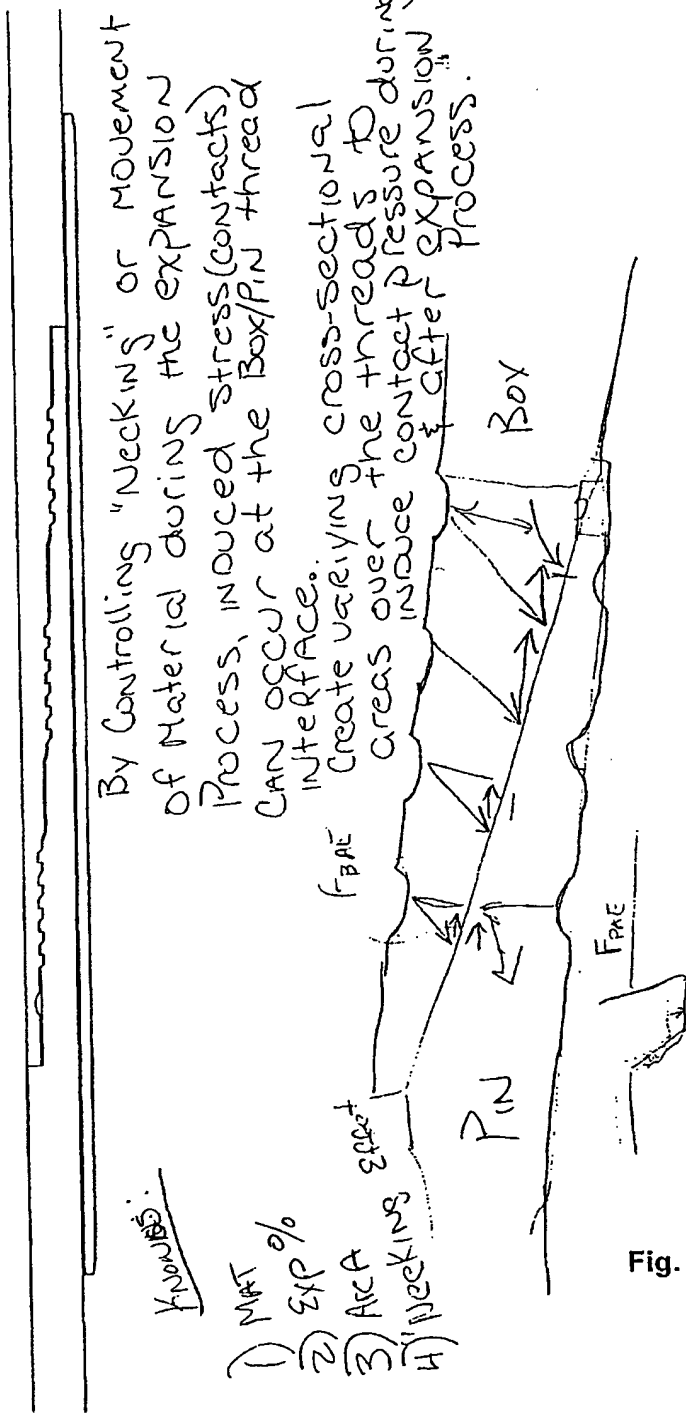 By Controlling "Necking" or Movement
of Material during the expansion
Process, induced stress (contacts)
CAN occur at the Box/Pin thread
INterfAce.
Create varIying cross-sectional
areas over the threads to
INDuce contact pressure during
& after expansion
Process.
1) MAT
2) Exp %
3) AreA
4) "Necking Effect
FBAE
Box
PIN
FPAE
Fig.